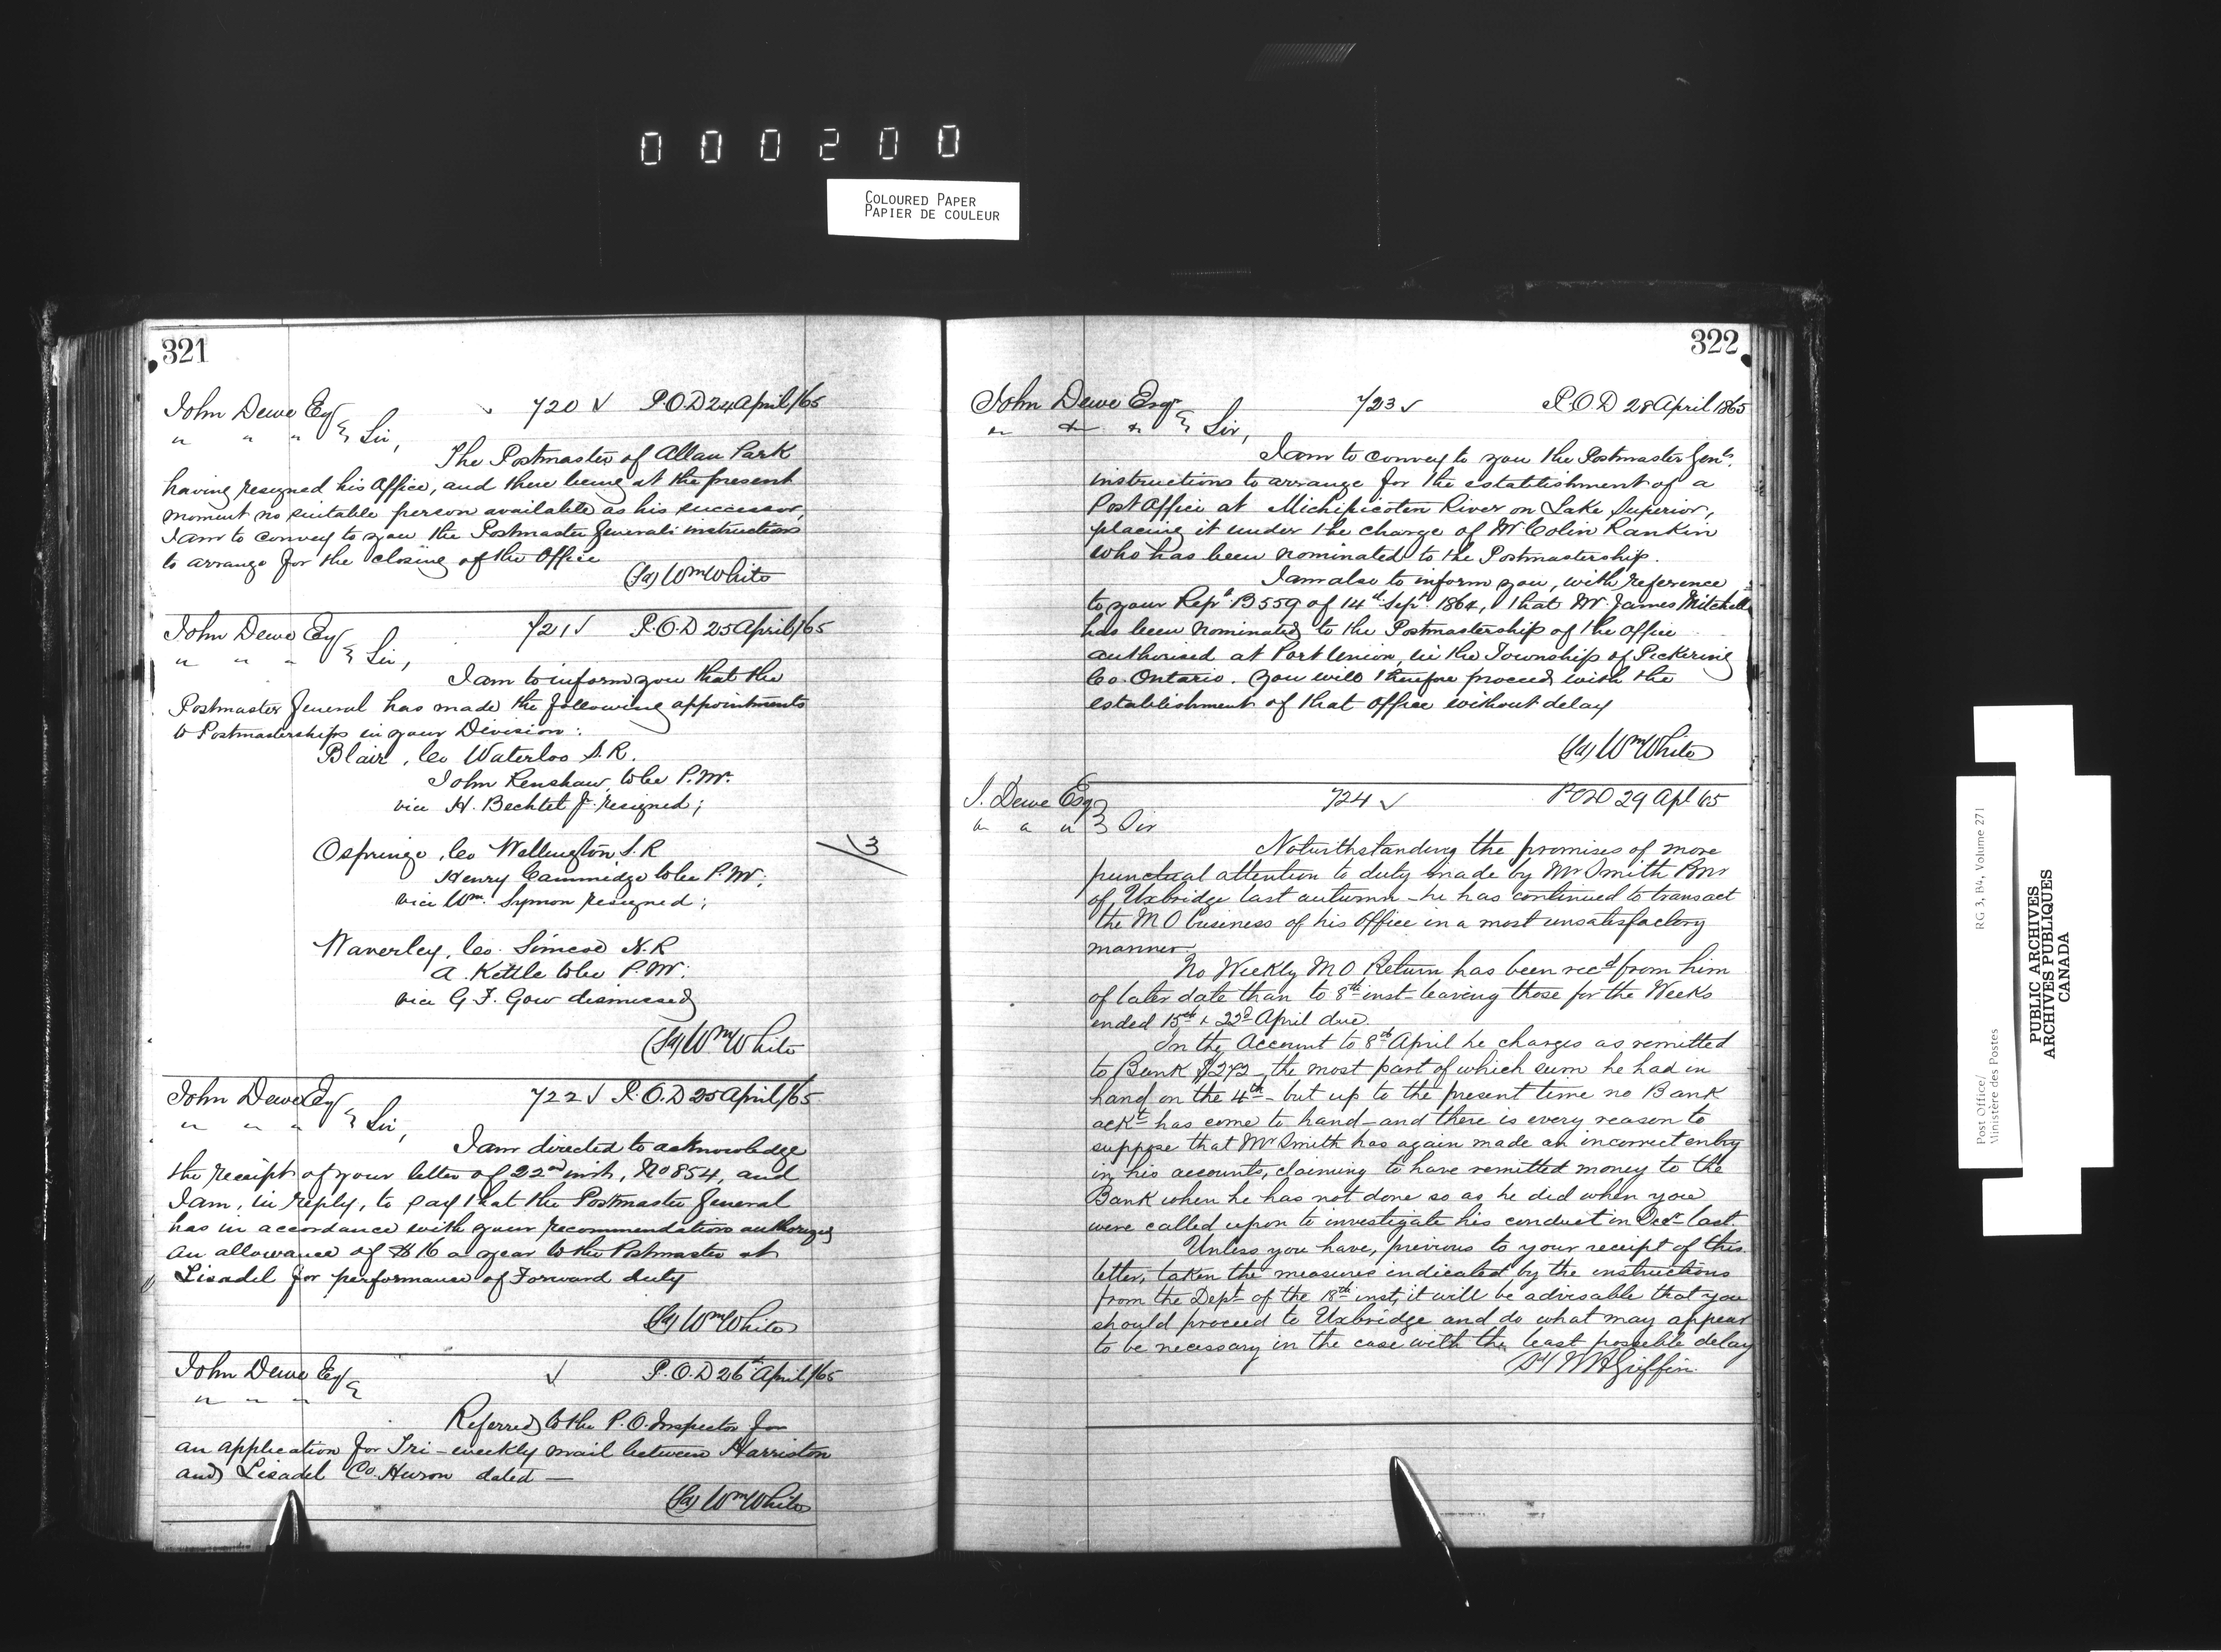 000200
COLOURED PAPER
PAPIER DE COULEUR
321
John Dewe Esq 720 ✓ P.O.D 24 April/65
" " " } Sir,
The Postmaster of Allan Park
having resigned his Office, and there being at the present
moment no suitable person available as his successor,
I am to convey to you the Postmaster Generals instructions
to arrange for the closing of the Office
(Sd) Wm White
John Dewe Esq 721 ✓ P.O.D 25 April/65
" " " } Sir,
I am to inform you that the
Postmaster General has made the following appointments
to Postmasterships in your Division:
Blair, Co Waterloo S.R.
John Renshaw, to be P.M.
vice H. Bechtel Jr. resigned;
Ospringe, Co Wellington S.R
Henry Cammidge to be P.M;
vice Wm. Symon resigned;
Waverley, Co. Simcoe N.R
A. Kettle to be P.M;
vice G F. Gow dismissed
(Sd) Wm White
John Dewe Esq 722 ✓ P.O.D 25 April/65
" " " } Sir,
I am directed to acknowledge
the receipt of your letter of 22nd inst, No 854, and
I am, in reply, to say that the Postmaster General
has in accordance with your recommendation authorized
an allowance of $16 a year to the Postmaster at
Lisadel for performance of Forward duty
(Sd) Wm White
John Dewe Esq } ✓ P.O.D 26th April/65
" " "
Referred to the P.O. Inspector for
an application for Tri-weekly mail between Harriston
and Lisadel Co. Huron dated —
(Sd) Wm White
13
322
John Dewe Esqr 723 ✓ P.O.D 28 April 1865
" " " } Sir,
I am to convey to you the Postmaster Genls.
instructions to arrange for the establishment of a
Post Office at Michipicoten River on Lake Superior,
placing it under the charge of Mr Colin Rankin
who has been nominated to the Postmastership.
I am also to inform you, with reference
to your Rept. B559 of 14th Sept. 1864, that Mr. James Mitchell
has been nominated to the Postmastership of the Office
authorised at Port Union, in the Township of Pickering
Co. Ontario. You will therefore proceed with the
establishment of that office without delay
(Sd) Wm White
J. Dewe Esq 724 ✓ POD 29 Apl 65
" " " } Sir
Notwithstanding the promises of more
punctual attention to duty made by Mr Smith Pmr
of Uxbridge last autumn – he has continued to transact
the M O business of his office in a most unsatisfactory
manner.
No Weekly M O Return has been recd from him
of later date than to 8th inst – leaving those for the Weeks
ended 15th & 22d April due.
In the Account to 8th April he charges as remitted
to Bank $272, the most part of which sum he had in
hand on the 4th – but up to the present time no Bank
ackt has come to hand – and there is every reason to
suppose that Mr Smith has again made an incorrect entry
in his accounts, claiming to have remitted money to the
Bank when he has not done so as he did when you
were called upon to investigate his conduct in Decr last.
Unless you have, previous to your receipt of this
letter, taken the measures indicated by the instructions
from the Dept of the 18th inst, it will be advisable that you
should proceed to Uxbridge and do what may appear
to be necessary in the case with the least possible delay
Sd/ W H Griffin
Post Office/ RG 3, B4, Volume 271
Ministère des Postes
PUBLIC ARCHIVES
ARCHIVES PUBLIQUES
CANADA